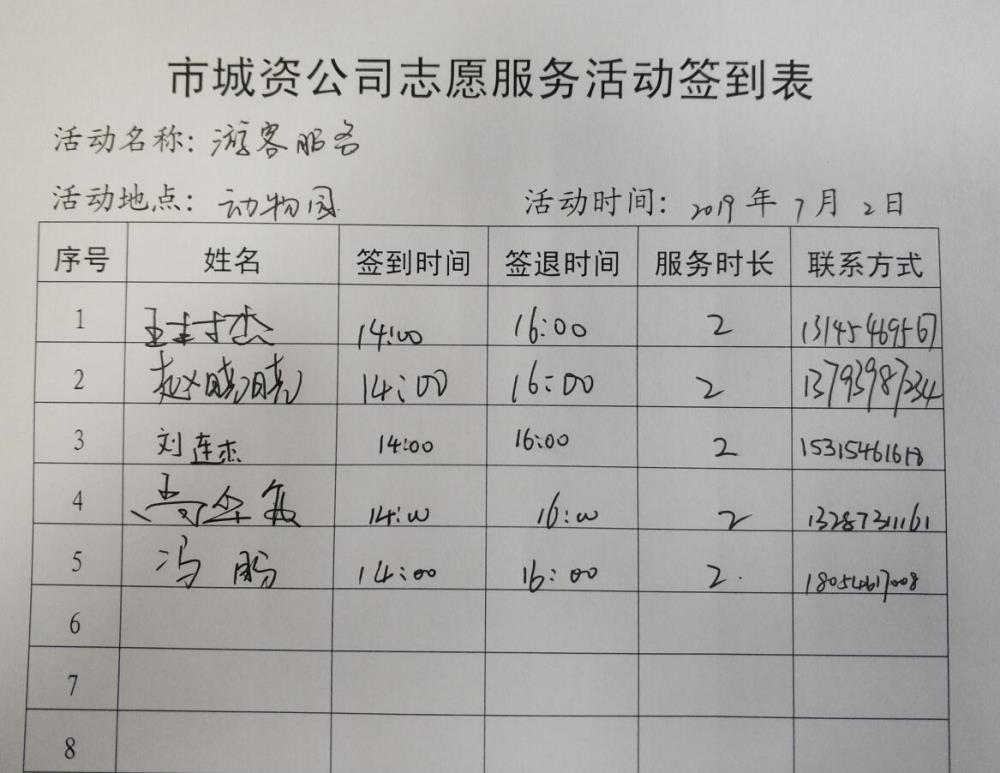 市城资公司志愿服务活动签到表
活动名称：游客服务
活动地点：动物园 活动时间：2019年7月2日
序号 姓名 签到时间 签退时间 服务时长 联系方式
1 王封杰 14:00 16:00 2 13145469567
2 赵晓晓 14:00 16:00 2 13793987234
3 刘连杰 14:00 16:00 2 15315461618
4 14:00 16:00 2 13287311161
5 冯鹏 14:00 16:00 2 18054617008
6
7
8